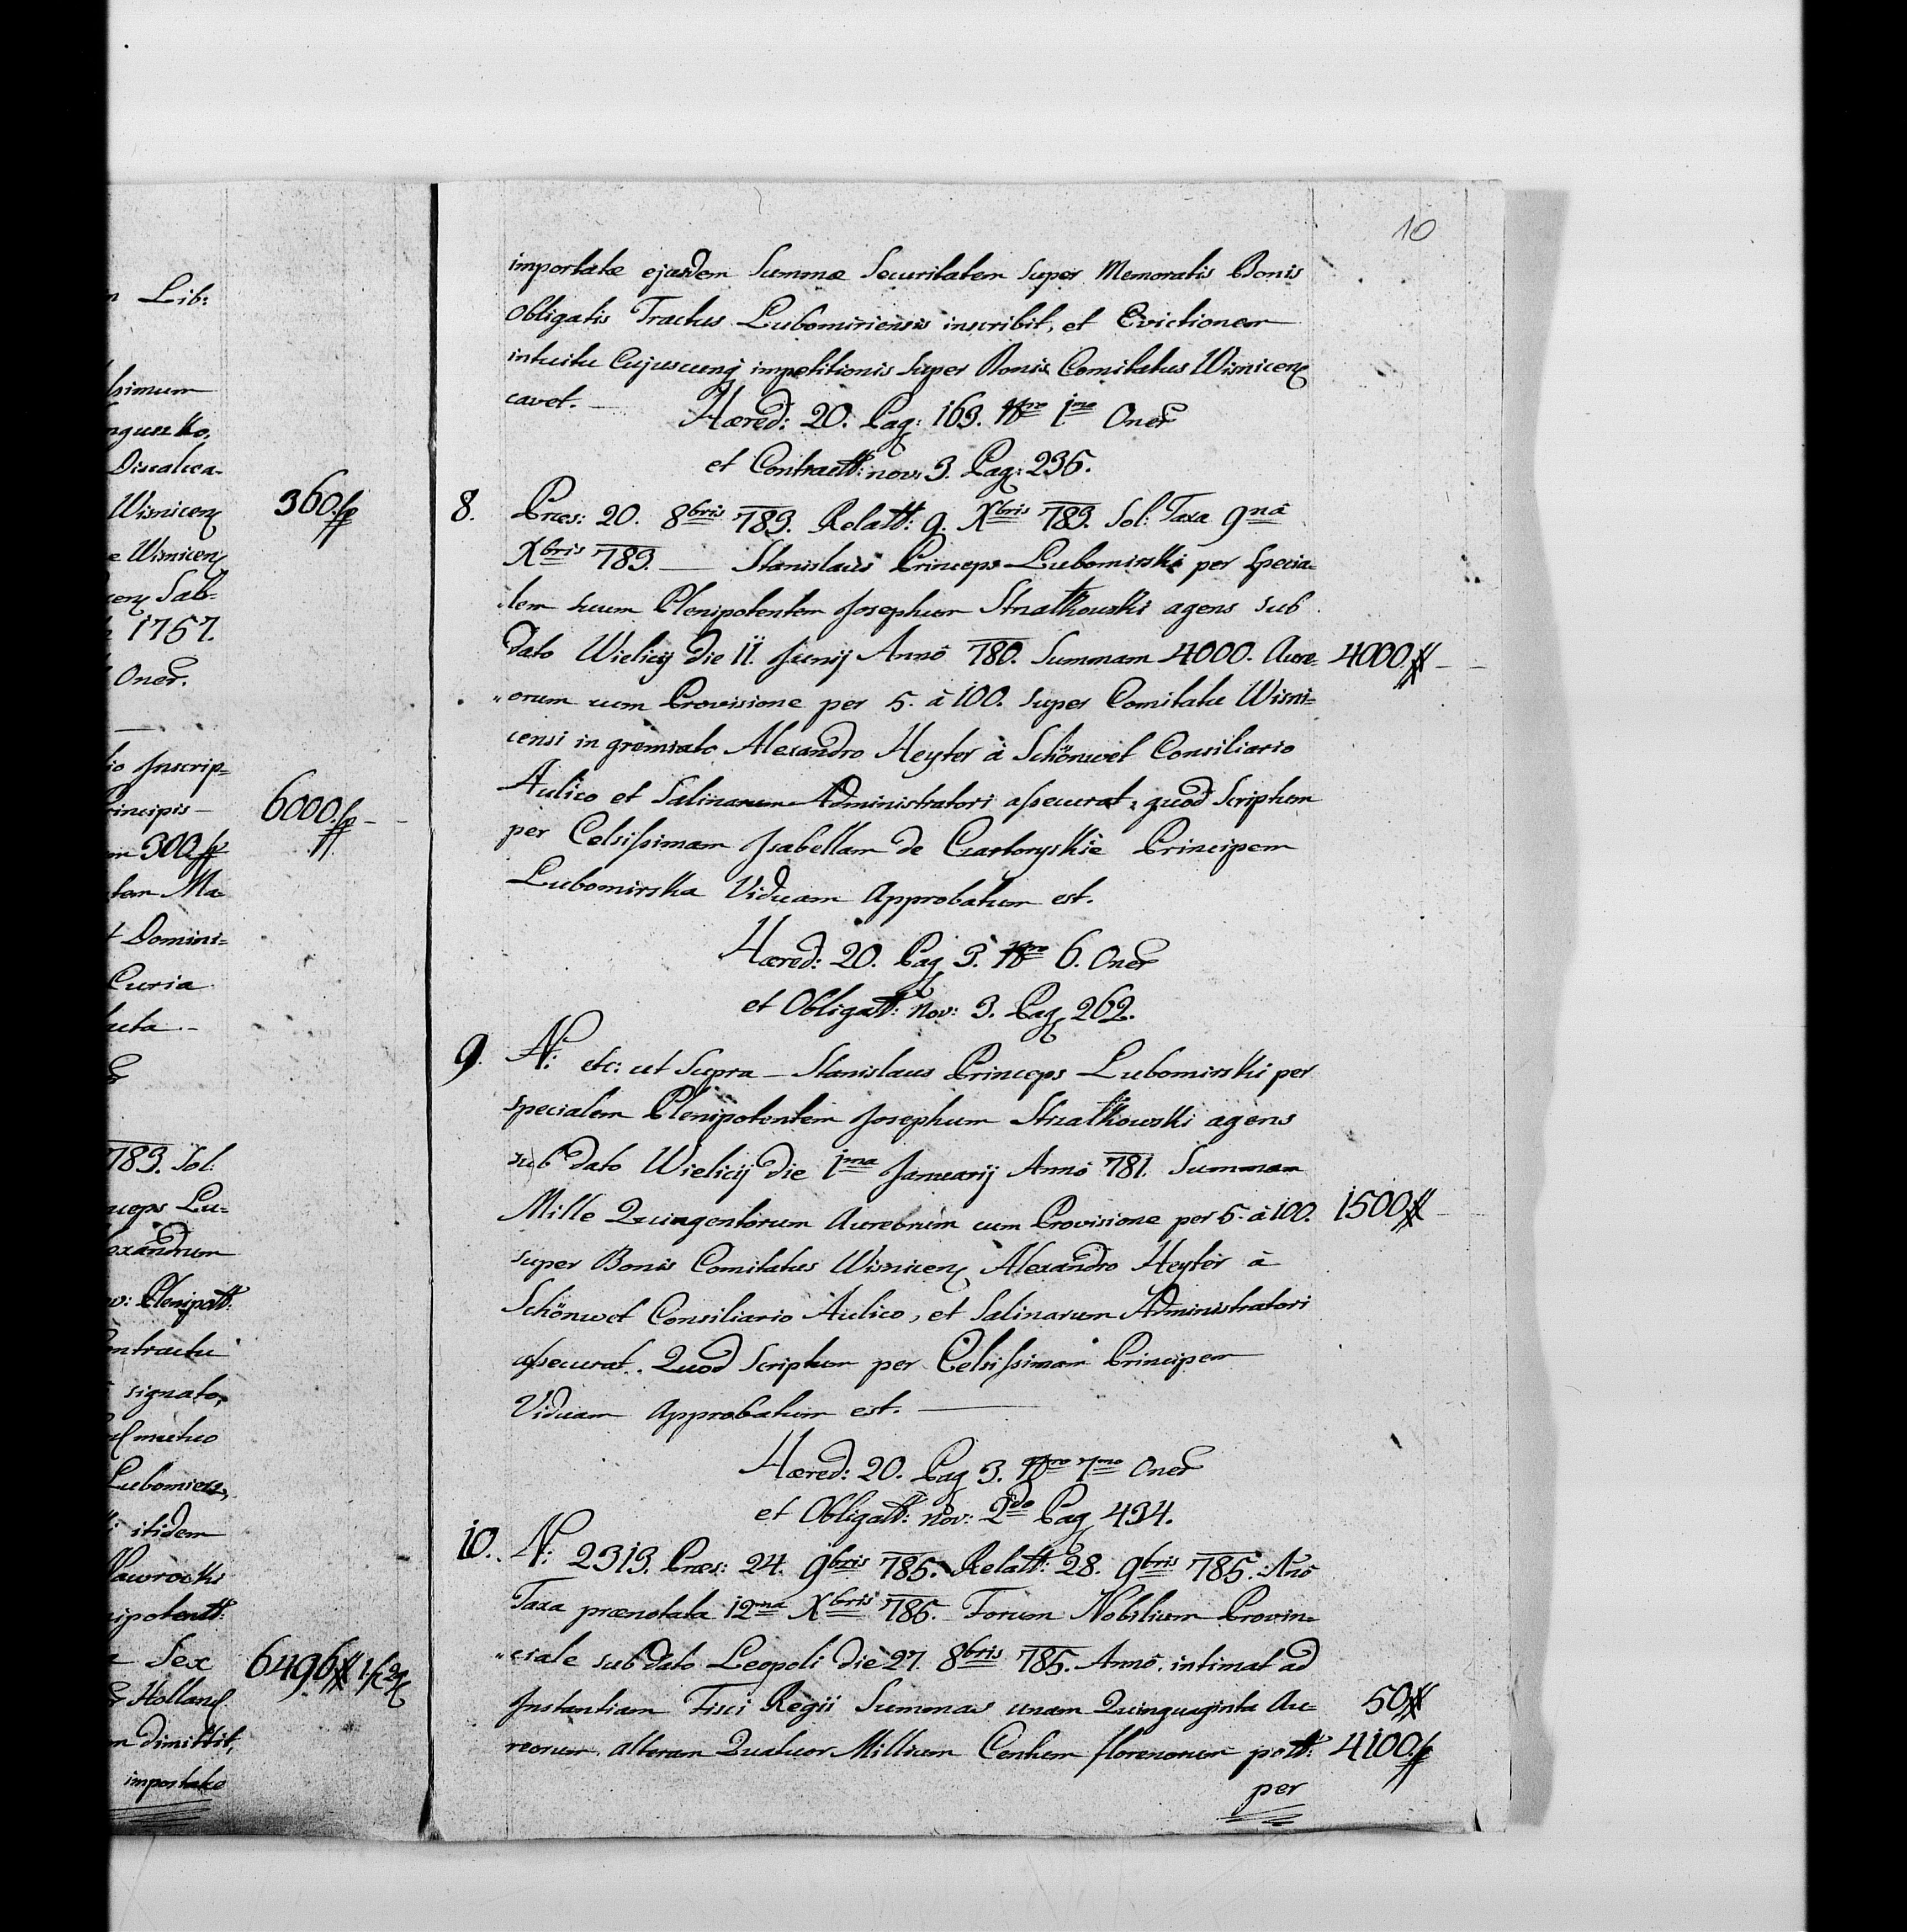 n Lib:
ssimum
nguszko,
Discalcea-
Wisnicen
360.fp
e Wisnicen
cen Sab-
1767.
Oner.
io Inscrip=
rincipis —
6000.fp - -
m 300 fp
tem Ma-
t Domini=
Curia
facta. —
783. Sol:
nceps Lu-
lexandrum
ov: Plenipott:
ontractu
signato,
mutuo
Lubomiers,
itidem
Nawrocki
nipotentt:
Sex
6496
Holland
m dimittit,
importatae
10
importatae ejusdem Summae Securitatem super Memoratis Bonis
Obligatis Tractus Lubomiriensis inscribit, et Evictionem
intuitu Cujuscunq impetitionis super Bonis Comitatus Wisnicen
cavet. — Haered: 20. Pag: 163. Nro 1mo Oner
et Contractt: nov: 3. Pag: 236.
8. Praes: 20. 8bris 783. Relatt: 9. Xbris 783. Sol: Taxa 9nâ
Xbris 783. — Stanislaus Princeps Lubomirski per specia-
lem suum Plenipotentem Josephum Strzałkowski agens sub
dato Wielicij die 11. Junij Annô 780. Summam 4000. Aure- 4000.# - -
"orum cum Provisione per 5. à 100. super Comitatu Wisni=
censi in gremiato Alexandro Heyter à Schönwet Consiliario
Aulico et Salinarum Administratori assecurat, quod Scriptum
per Celsissimam Isabellam de Czartoryskie Principem
Lubomirska Viduam Approbatum est.
Haered: 20. Pag 3. Nro 6. Oner
et Obligatt: nov: 3. Pag 262.
9. N: etc: ut Supra — Stanislaus Princeps Lubomirski per
specialem Plenipotentem Josephum Strzałkowski agens
sub dato Wielicij die 1ma Januarij Annô 781. Summam
Mille Quingentorum Aureorum cum Provisione per 5. à 100. 1500# - -
super Bonis Comitatus Wisnicen Alexandro Heyter à
Schönwet Consiliario Aulico, et Salinarum Administratori
assecurat. Quod Scriptum per Celsissimam Principem
Viduam Approbatum est. —
Haered: 20. Pag 3. Nro 7mo Oner
et Obligatt: nov: 2do Pag 434.
10. N: 2313. Praes: 24. 9bris 785. Relatt: 28. 9bris 785. Anô
Taxa praenotata 12ma Xbris 785. Forum Nobilium Provin-
"ciale sub dato Leopoli die 27. 8bris 785. Annô. intimat ad
Instantiam Fisci Regii Summas unam Quinquaginta Au- 50#
reorum. alteram Quatuor Millium Centum florenorum pott: 4100.fp
per